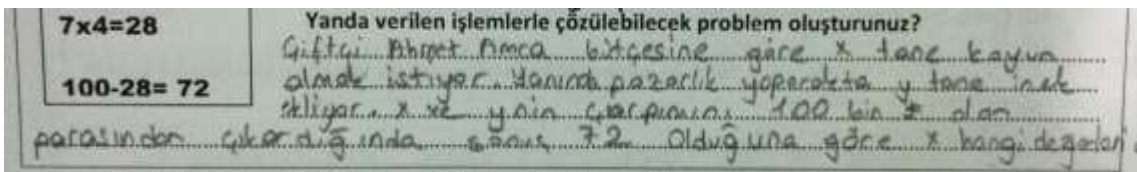 7x4=28
100-28= 72
Yanda verilen işlemlerle çözülebilecek problem oluşturunuz?
Çiftçi Ahmet Amca bütçesine göre x tane koyun
almak istiyor. Yanında pazarlık yaparakta y tane inek
ekliyor. x ve ynin çarpımını 100 bin ₺ olan
parasından çıkardığında sonuç 72 Olduğuna göre x hangi değerleri